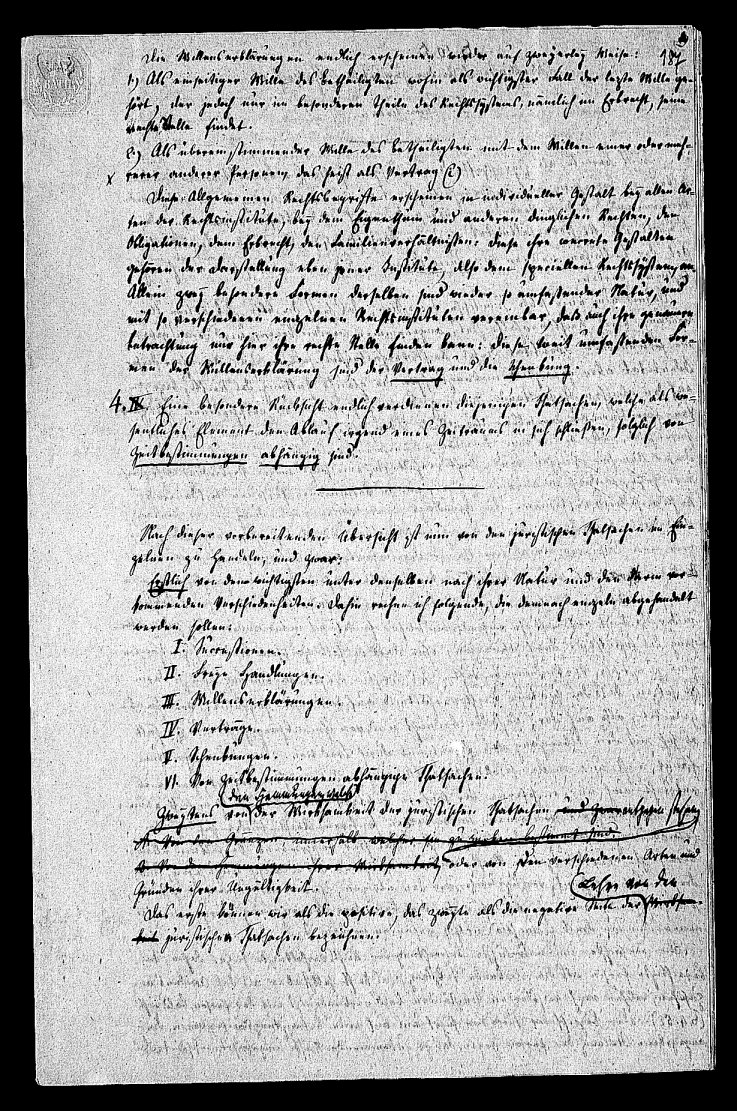 187
Die Willenserklärungen endlich erscheinen wieder auf zweyerley Weise:
1.) Als einseitiger Wille des Betheiligten wohin als wichtigster Fall der letzte Wille ge-
hört, der jedoch nur im besonderen Theile des Rechtssystems, nämlich im Erbrecht, seine
rechte Stelle findet.
2.) Als übereinstimmender Wille des Betheiligten mit dem Willen einer oder meh-
x rerer anderer Personen, das heißt als Vertrag
Diese Allgemeinen Rechtsbegriffe erscheinen in individueller Gestalt bey allen Ar-
ten der Rechtsinstitute, bey dem Eigenthum und anderen dinglichen Rechten, den
Obligationen, dem Erbrecht, den Familienverhältnissen: diese ihre concrete Gestalten
gehören der Darstellung eben jener Institute, also dem speciellen Rechtssystem, an.
Allein zwey besondere Formen derselben sind wieder so umfassender Natur, und
mit so verschiedenen einzelnen Rechtsinstituten vereinbar, daß auch ihre genauere
Betrachtung nur hier ihre rechte Stelle finden kann: diese weit umfassenden For-
men der Willenserklärung sind der Vertrag und die Schenkung.
4. IV. Eine besondere Rücksicht endlich verdienen diejenigen Thatsachen, welche als we-
sentliches Element den Ablauf irgend eines Zeitraums in sich schließen, folglich von
Zeitbestimmungen abhängig sind.
Nach dieser vorbereitenden Übersicht ist nun von den juristischen Thatsachen im Ein-
zelnen zu handeln, und zwar:
Erstlich von den wichtigsten unter denselben nach ihrer Natur und den darin vor-
kommenden Verschiedenheiten. Dahin rechne ich folgende, die demnach einzeln abgehandelt
werden sollen:
I. Successionen.
II. Freye Handlungen.
III. Willenserklärungen.
IV. Verträge.
V. Schenkungen.
VI. Von Zeitbestimmungen abhängige Thatsachen.
den Hemmungen
Zweytens von der Wirksamkeit der juristischen Thatsachen und
von den Gränzen, innerhalb welcher sie zu wirken bestimmt sind.
ihrer Wirksamkeit, oder von den verschiedenen Arten und
Gründen ihrer Ungültigkeit.
Lehre von den
Das erste können wir als die positive, das zweyte als die negative Seite der Wirksam-
keit juristischer Thatsachen bezeichnen.